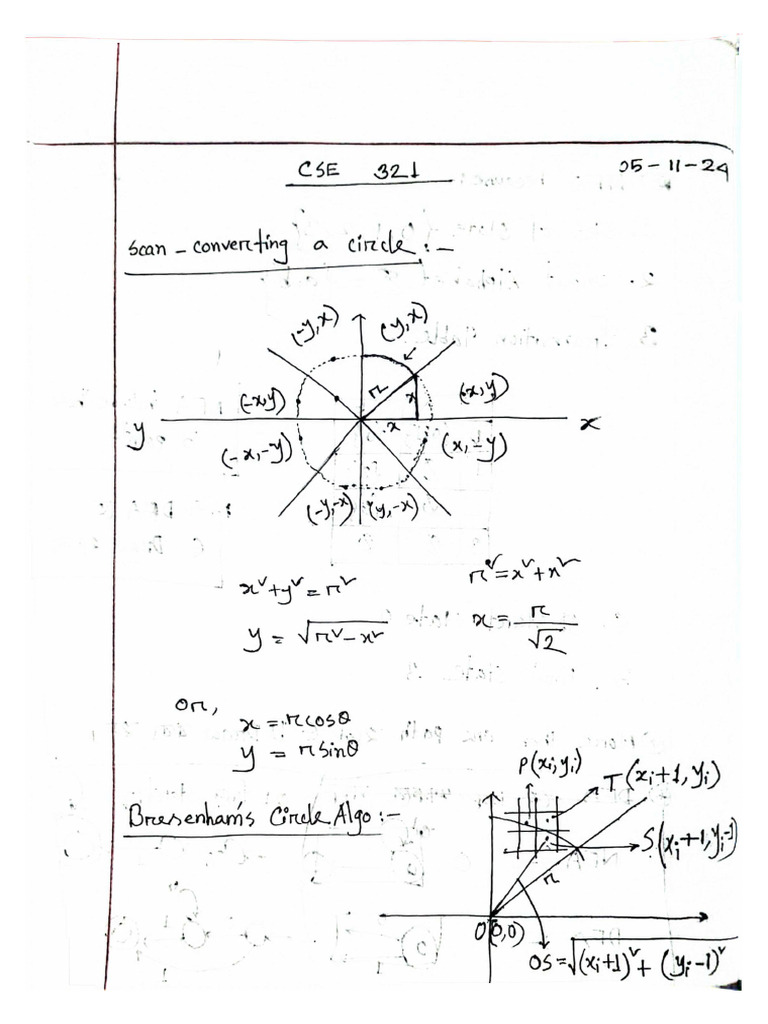 CSE 321
05-11-24
Scan-converting a circle :-
(-y,x) (y,x)
(-x,y) (x,y)
r x
y x x
(-x,-y) (x,-y)
(-y,-x) (y,-x)
x²+y²=r² r²=x²+x²
y = √r²-x² x = r/√2
or,
x = rcosθ
y = rsinθ
P(xi,yi) T(xi+1,yi)
Bresenham's Circle Algo :-
S(xi+1,yi-1)
r
O(0,0)
OS = √(xi+1)²+(yi-1)²